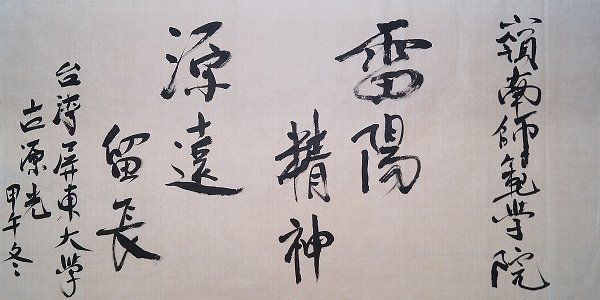 嶺南師範学院
雷陽
精神
源遠
留長
台湾屏東大学
古源光
甲午冬